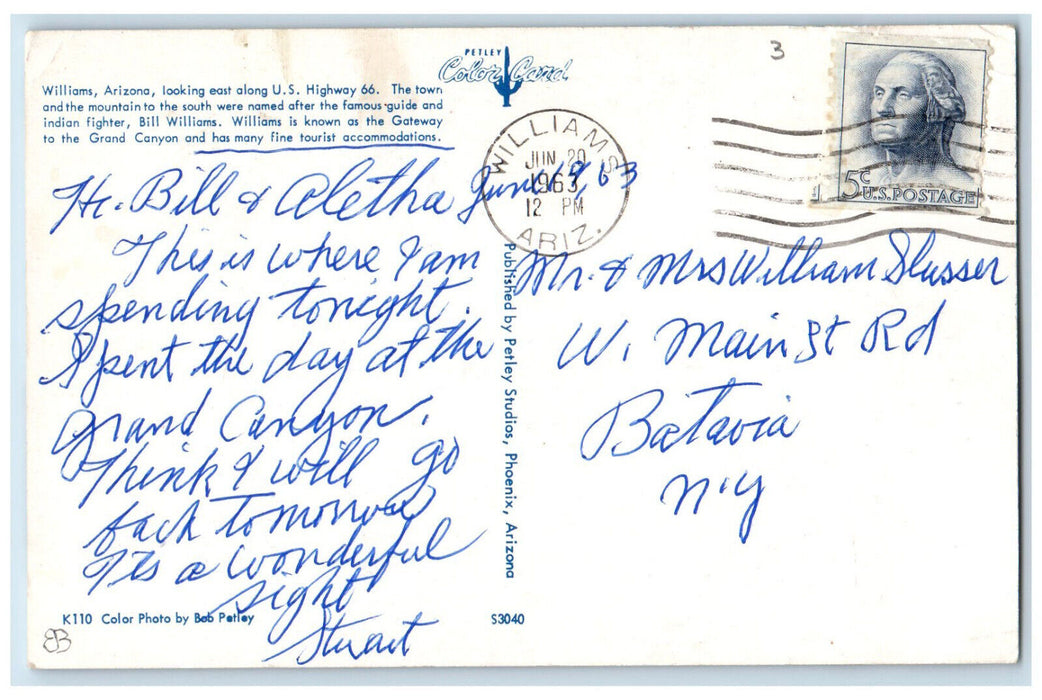 PETLEY
Color Card
3
Williams, Arizona, looking east along U.S. Highway 66. The town
and the mountain to the south were named after the famous guide and
indian fighter, Bill Williams. Williams is known as the Gateway
to the Grand Canyon and has many fine tourist accommodations.
WILLIAMS
JUN 20
1963
12 PM
ARIZ.
5c
U.S. POSTAGE
Hi. Bill & Aletha June 19, 63
This is where I am
spending tonight.
Spent the day at the
Grand Canyon.
Think I will go
back tomorrow
It's a wonderful
sight
Stuart
Published by Petley Studios, Phoenix, Arizona
Mr. & Mrs William Slusser
W. Main St Rd
Batavia
N.Y
K110 Color Photo by Bob Petley
S3040